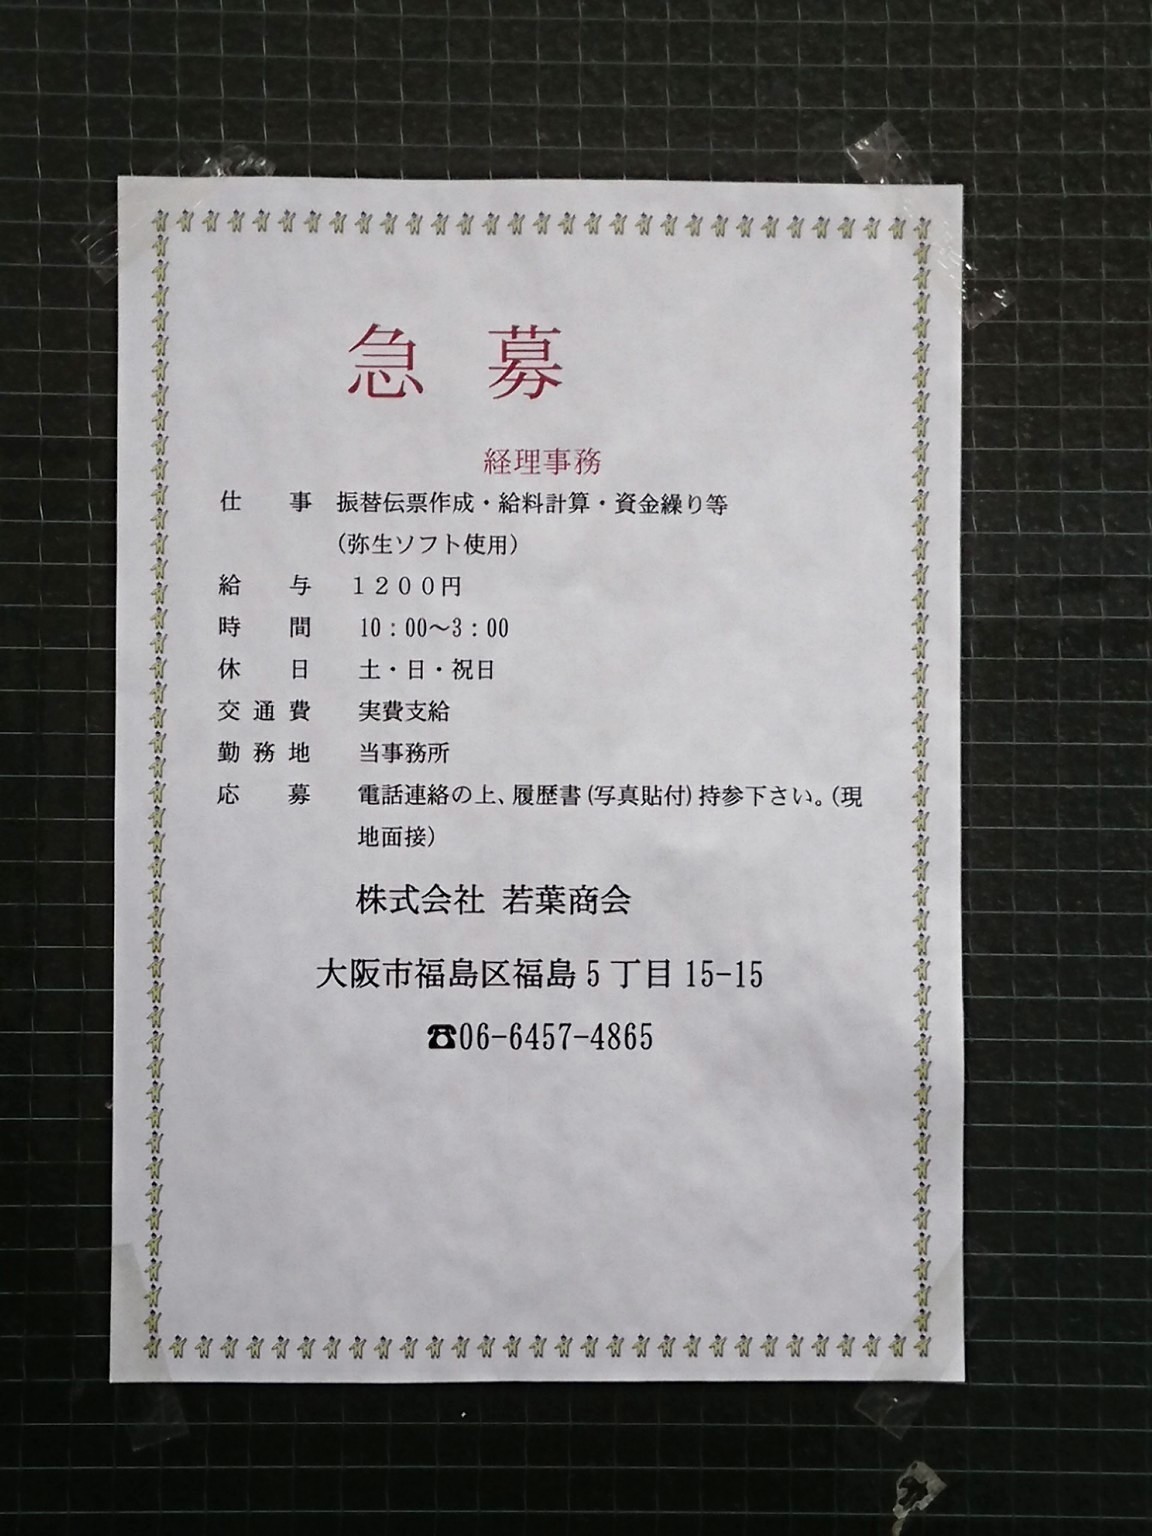 急 募
経理事務
仕 事 振替伝票作成・給料計算・資金繰り等
(弥生ソフト使用)
給 与 1200円
時 間 10:00～3:00
休 日 土・日・祝日
交通費 実費支給
勤務地 当事務所
応 募 電話連絡の上、履歴書(写真貼付)持参下さい。(現
地面接)
株式会社 若葉商会
大阪市福島区福島5丁目15-15
☎06-6457-4865